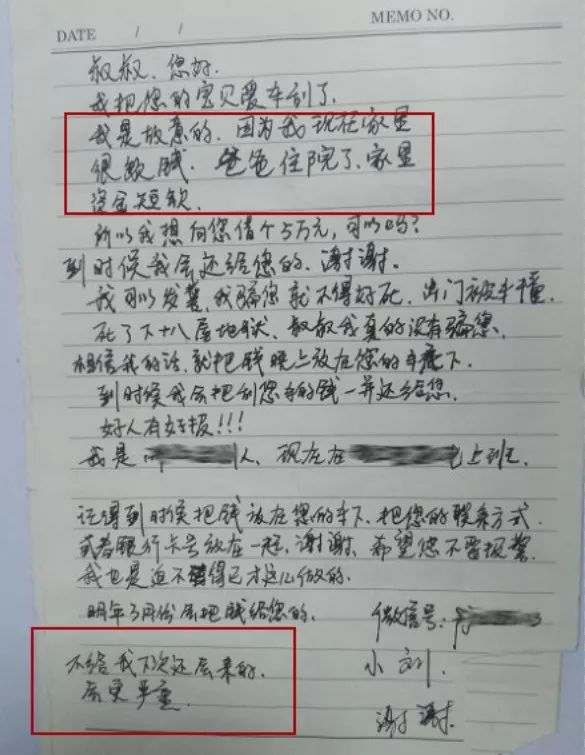 DATE / /
MEMO NO.
叔叔、您好.
我把您的宝贝爱车刮了.
我是故意的. 因为我现在家里
很缺钱. 爸爸住院了、家里
资金短缺.
所以我想向您借个5万元, 可以吗?
到时候我会还给您的、谢谢.
我可以发誓, 我骗您就不得好死、出门被车撞.
死了下十八层地狱. 叔叔我真的没有骗您.
相信我的话、就把钱晚上放在您的车底下.
到时候我会把刮您车的钱一并还给您.
好人有好报!!!
我是 人、现在在 上班.
记得到时候把钱放在您的车下、把您的联系方式.
或者银行卡号放在一起, 谢谢. 希望您不要报警.
我也是迫不得已才这么做的.
明年3月份会把钱给您的.
微信号:
不给我下次还会来的.
小刘.
后更严重.
谢谢.